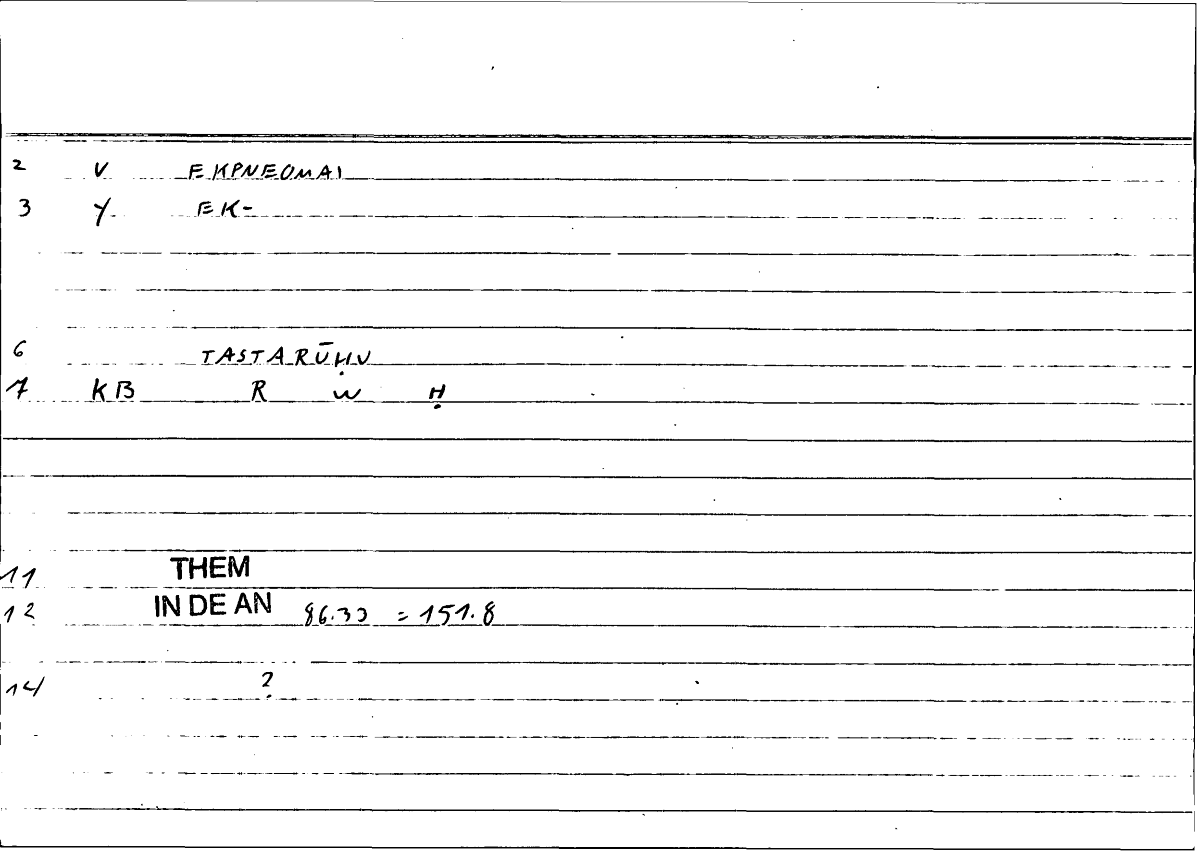 2 V EKPNEOMAI
3 Y EK-
6 TASTARŪḤU
7 KB R W Ḥ
11 THEM
12 IN DE AN 86.33 = 151.8
14 ?